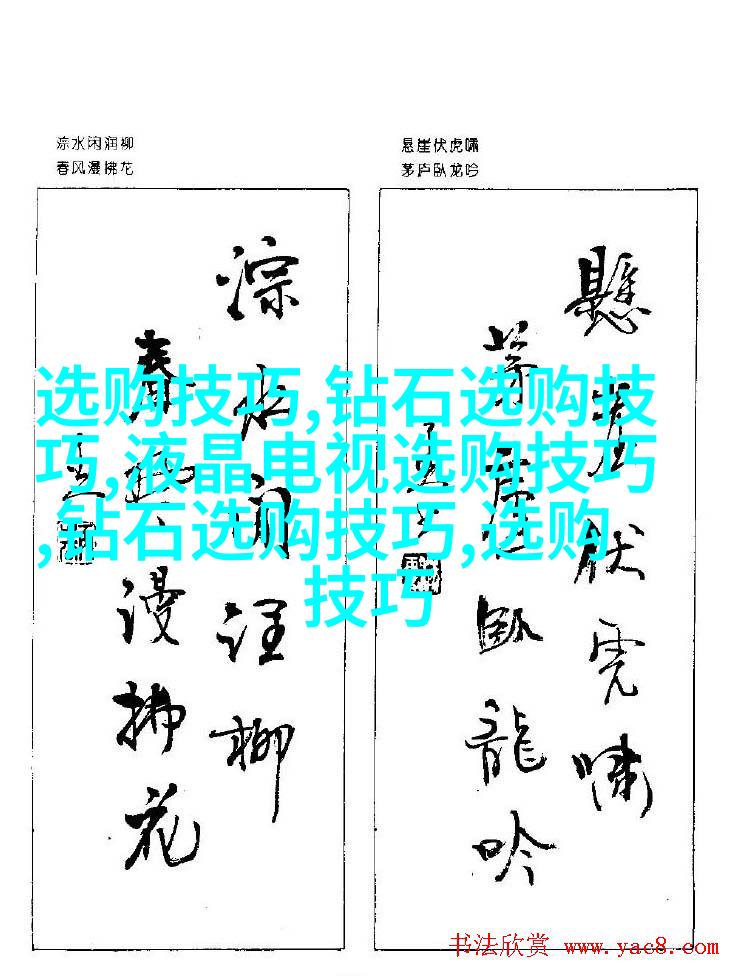 淙水闲润柳
春风漫拂花
悬崖伏虎啸
茅庐卧龙吟
淙水闲润柳
春风漫拂花
懸崖伏虎啸
茅庐卧龍吟
选购技巧,钻石选购技
巧,液晶电视选购技巧
,钻石选购技巧,选购
技巧
书法欣赏 www.yac8.com